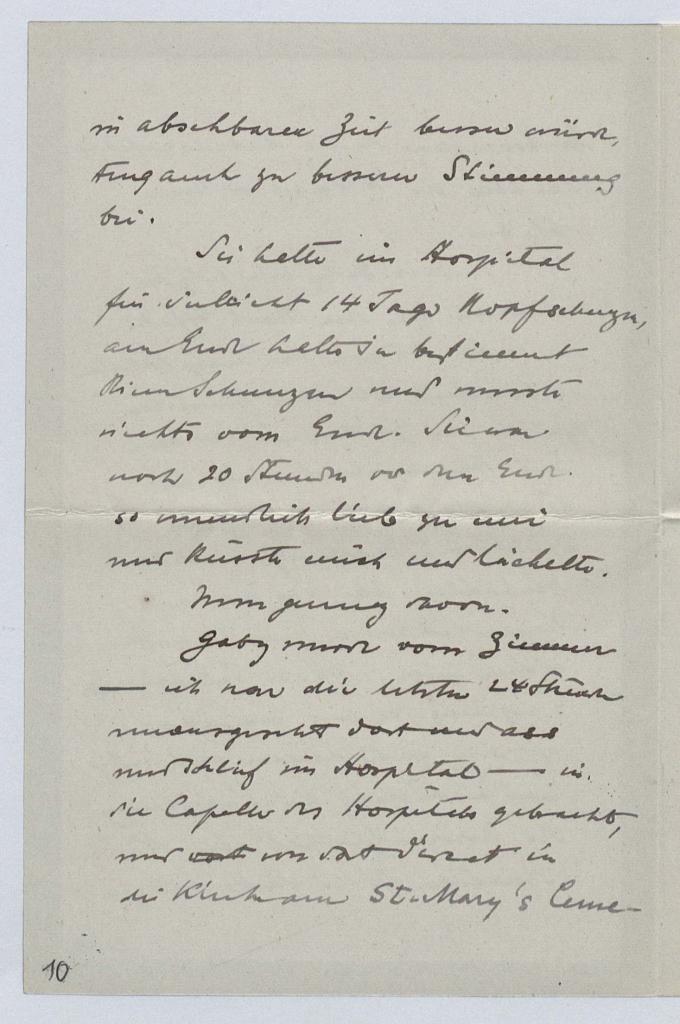 in absehbarer Zeit besser würde,
trug auch zu besserer Stimmung
bei.
Sie hatte im Hospital
für vielleicht 14 Tage Kopfschmerzen,
am Ende hatte sie bestimmt
keine Schmerzen und wusste
nichts vom Ende. Sie war
noch 20 Stunden vor dem Ende
so unendlich lieb zu mir
und küsste mich und lächelte.
Nun genug davon.
Gaby wurde vom Zimmer
— ich war die letzten 24 Stunden
unausgesetzt dort und ass
und schlief im Hospital — in
die Capelle des Hospitals gebracht,
und von dort direct in
die Kirche am St. Mary's Ceme-
10